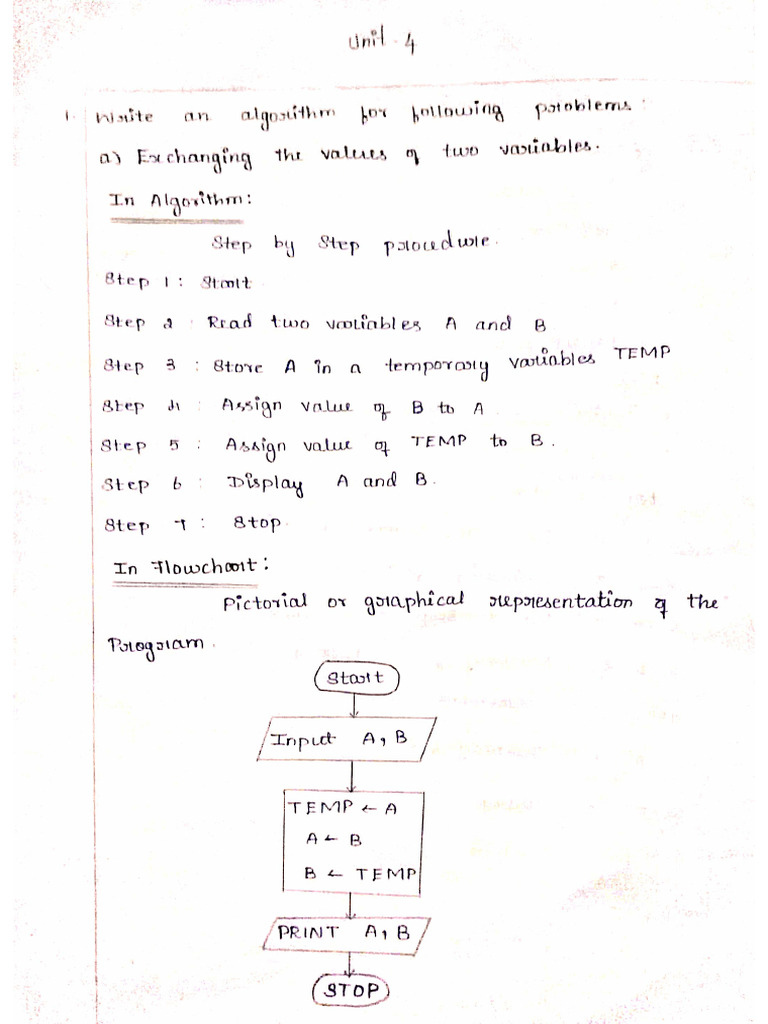 Unit-4
1. Write an algorithm for following problems:
a) Exchanging the values of two variables.
In Algorithm:
Step by Step procedure.
Step 1: Start
Step 2: Read two variables A and B
Step 3: Store A in a temporary variables TEMP
Step 4: Assign value of B to A
Step 5: Assign value of TEMP to B.
Step 6: Display A and B.
Step 7: Stop.
In Flowchart:
Pictorial or graphical representation of the
Program.
Start
Input A, B
TEMP ← A
A ← B
B ← TEMP
PRINT A, B
STOP